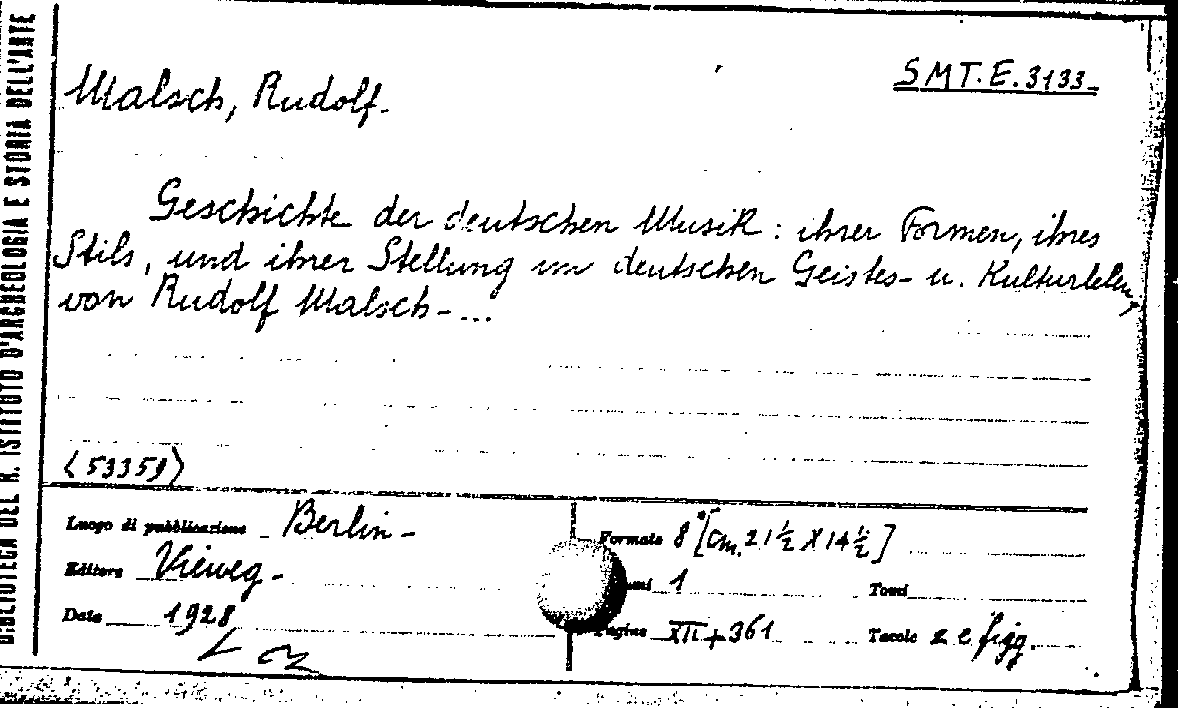 BIBLIOTECA DEL R. ISTITUTO D'ARCHEOLOGIA E STORIA DELL'ARTE
Malsch, Rudolf.
SMT.E.3133
Geschichte der deutschen Musik : ihrer Formen, ihres
Stils, und ihrer Stellung im deutschen Geistes- u. Kulturleben,
von Rudolf Malsch - ...
(53359)
Luogo di pubblicazione Berlin -
Formato 8° [cm. 21½ X 14½]
Editore Vieweg -
1
Tomi
Data 1928
Pagine XII + 361
Tavole 2 e figg.